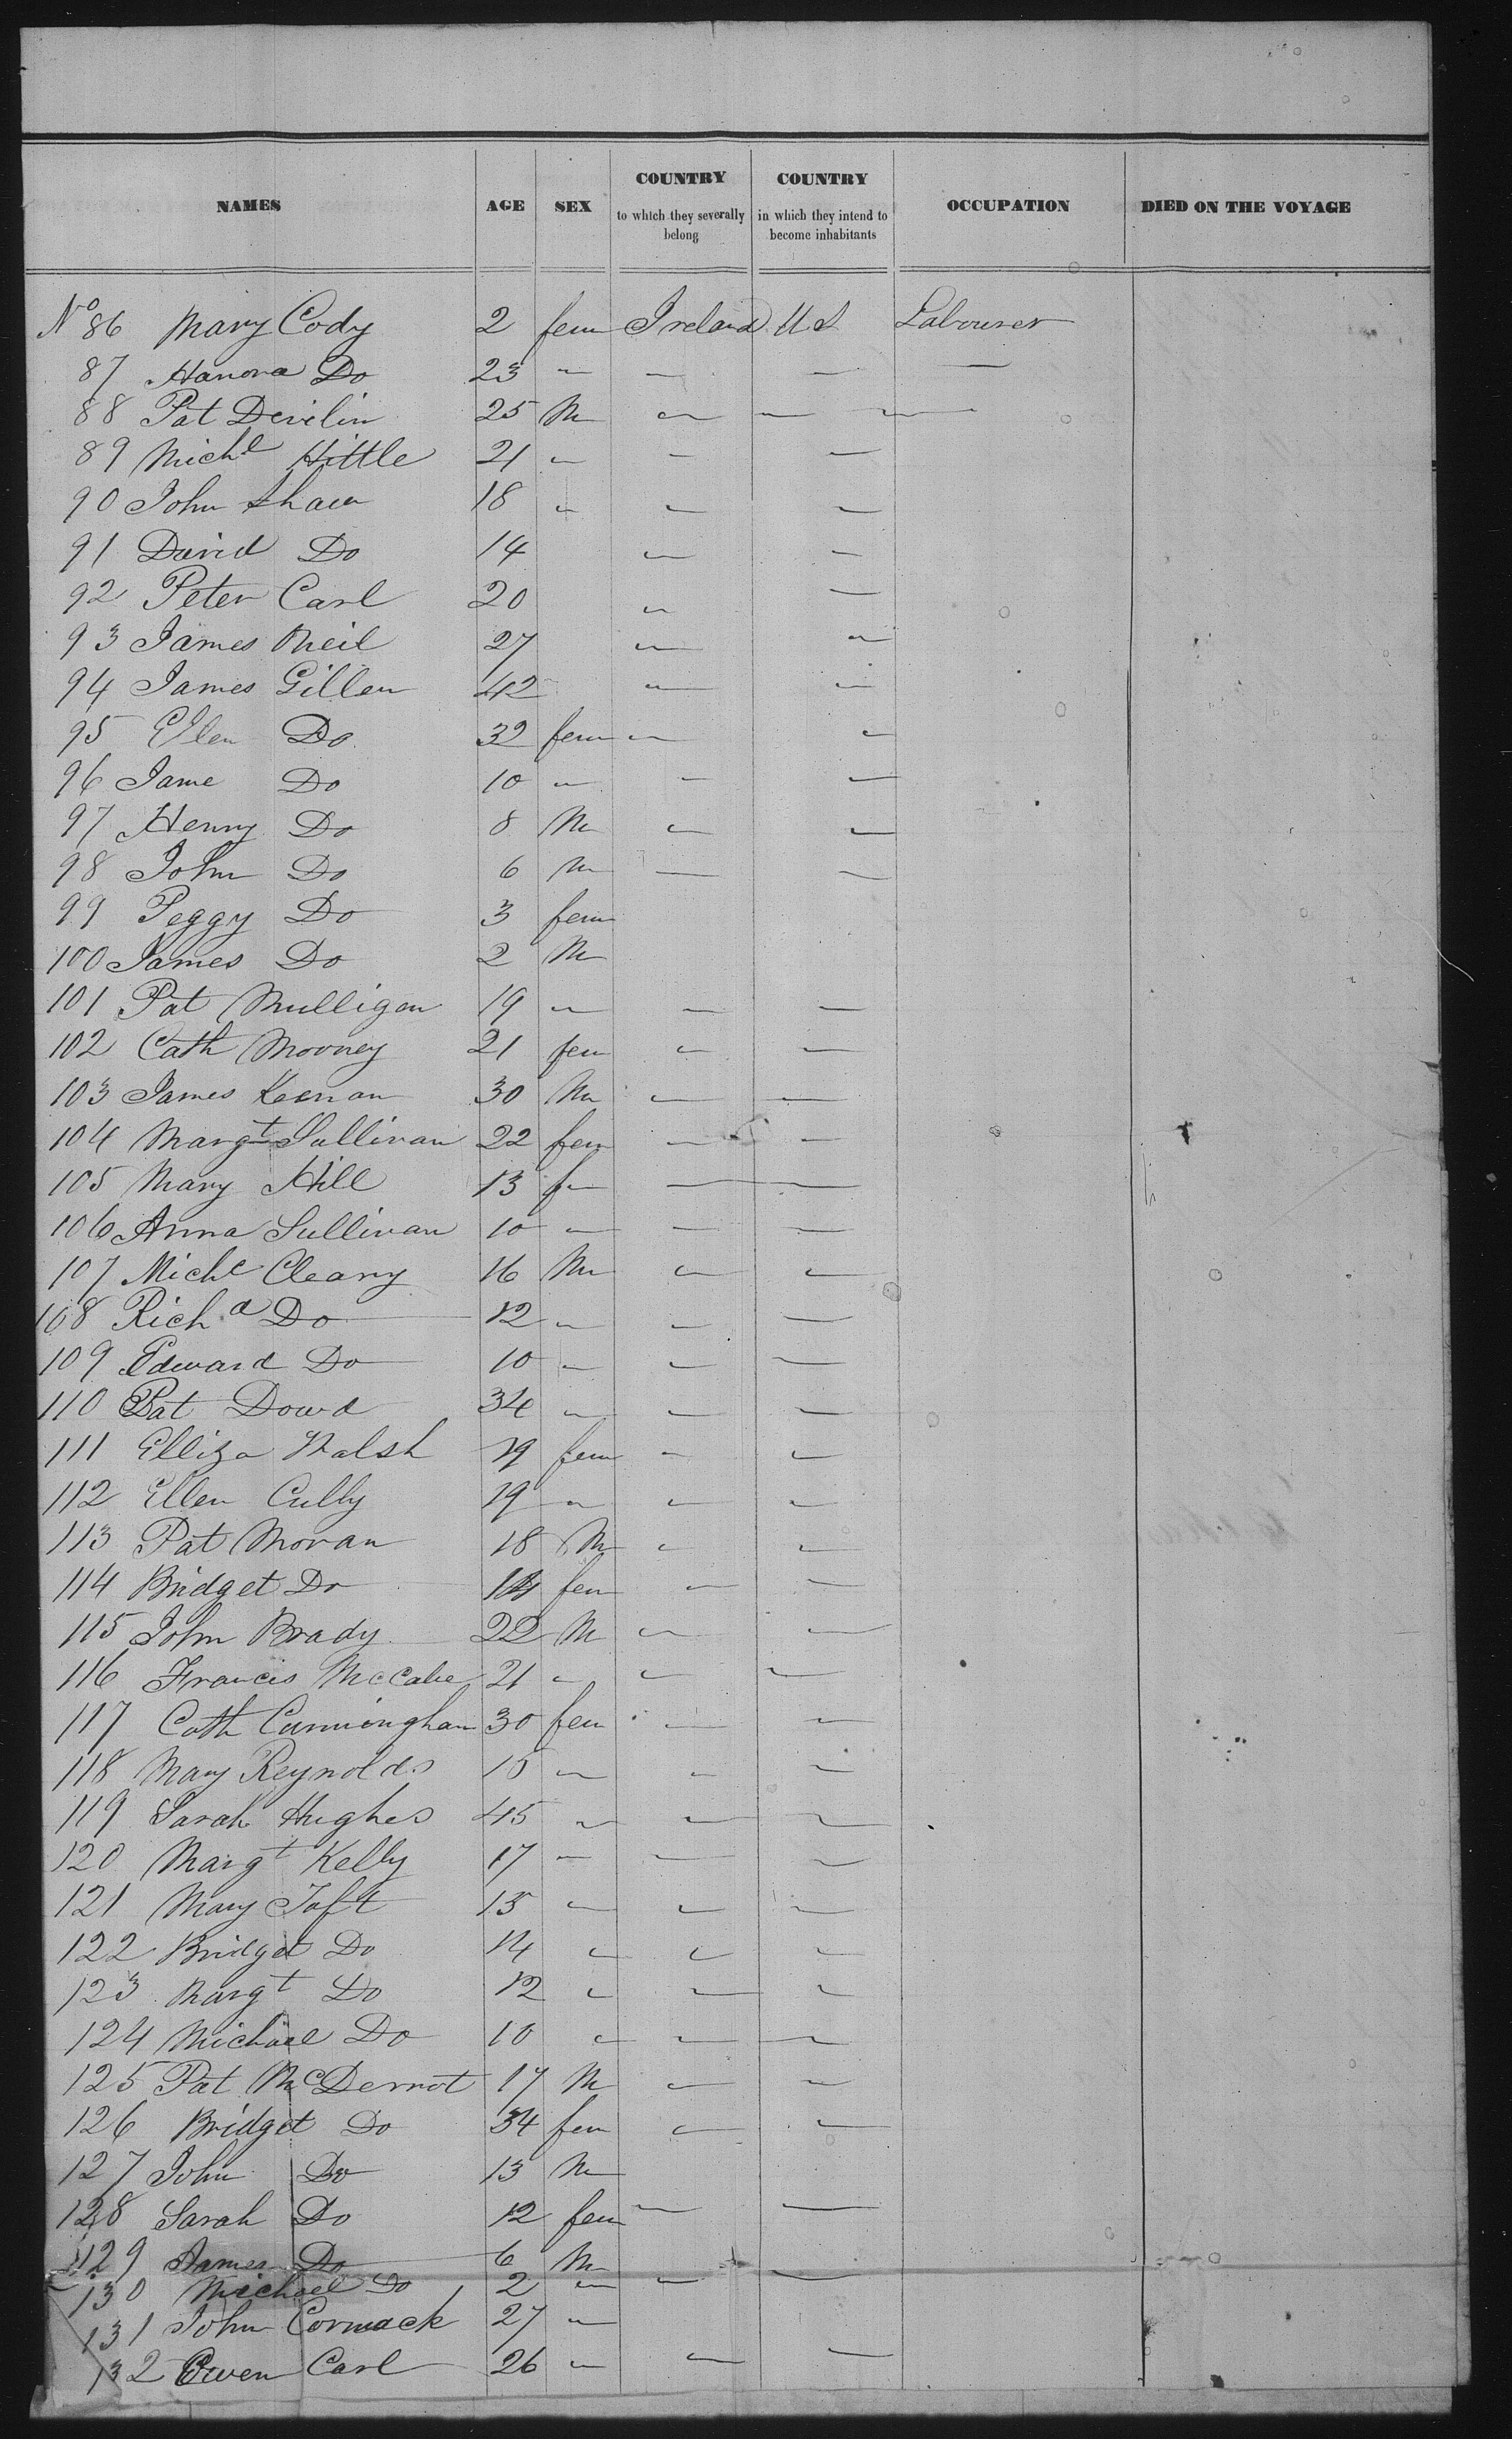 NAMES AGE SEX COUNTRY to which they severally belong COUNTRY in which they intend to become inhabitants OCCUPATION DIED ON THE VOYAGE
No 86 Mary Cody 2 fem Ireland U S Labourer
87 Hanora Do 23 " — — —
88 Pat Devilin 25 M " — —
89 Michl Hittle 21 " — —
90 John Shaw 18 " — —
91 David Do 14 " —
92 Peter Carl 20 " —
93 James Neil 27 " "
94 James Gillen 42 " —
95 Ellen Do 32 fem " "
96 Jame Do 10 " — —
97 Henry Do 8 M " "
98 John Do 6 M — —
99 Peggy Do 3 fem
100 James Do 2 M
101 Pat Mulligan 19 " — —
102 Cath Mooney 21 fem " —
103 James Keenan 30 M — —
104 Margt Sullivan 22 fem — —
105 Mary Hill 13 f — —
106 Anna Sullivan 10 " — —
107 Michl Cleary 16 M " —
108 Richd Do 12 " — —
109 Edward Do 10 " — —
110 Pat Dowd 34 " — —
111 Elliza Walsh 19 fem " —
112 Ellen Cully 19 " — —
113 Pat Moran 18 M " —
114 Bridget Do 14 fem " —
115 John Brady 22 M — —
116 Francis McCabe 21 " — —
117 Cath Cunningham 30 fem — —
118 Mary Reynolds 15 " — —
119 Sarah Hughes 45 " — —
120 Margt Kelly 17 " — —
121 Mary Taft 15 " — —
122 Bridget Do 14 " " —
123 Margt Do 12 " — "
124 Michael Do 10 " — —
125 Pat McDermot 17 M — —
126 Bridget Do 34 fem — —
127 John Do 13 M
128 Sarah Do 12 fem — —
129 James Do 6 M
130 Michael Do 2 " — —
131 John Cormack 27 "
132 Owen Carl 26 " — —